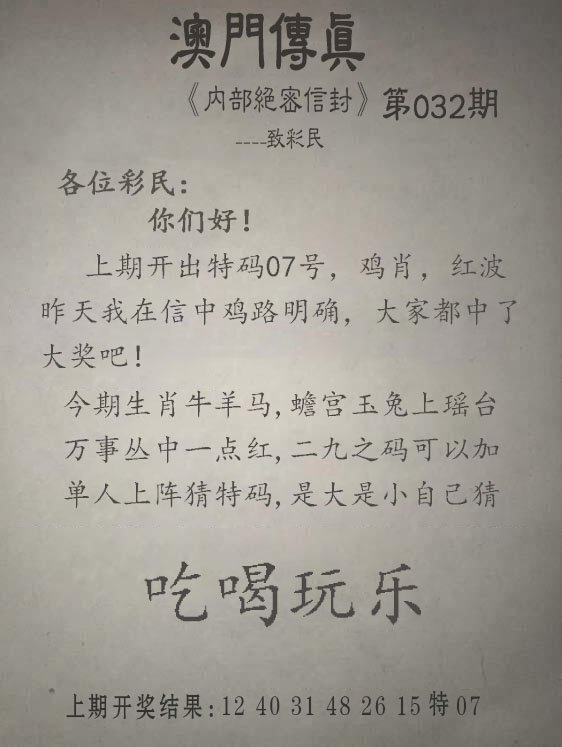 澳門傳眞
《内部絕密信封》第032期
----致彩民
各位彩民：
你们好！
上期开出特码07号，鸡肖，红波
昨天我在信中鸡路明确，大家都中了
大奖吧！
今期生肖牛羊马,蟾宫玉兔上瑶台
万事丛中一点红,二九之码可以加
单人上阵猜特码,是大是小自己猜
吃喝玩乐
上期开奖结果:12 40 31 48 26 15特07